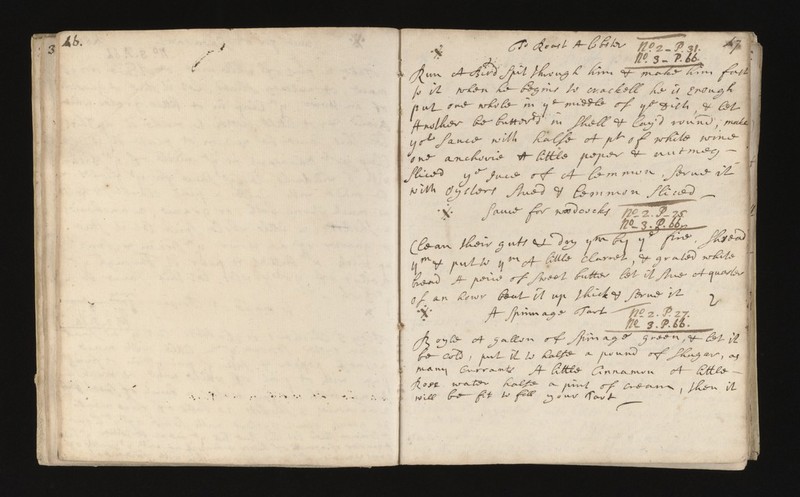 3
46.
47
To Roust A lobster No 2 - P. 31.
No 3 - P. 66
Run A Bird spit through him & make him fast
to it when he begins to crackell he is Enough
put one whole in ye middle of ye dish, & let
Another be butter'd in shell & lay'd round, make
yor Sauce with halfe A pt of white wine
one anchovie A little peper & nutmeg -
Sliced ye Juce of A Lemmon, serve it
with Oysters stued & Lemmon sliced
Sauce for woodcocks No 2. P. 25
No 3. P. 66.
Clean their guts & dry ym by ye fire, Shread
ym & put to ym A little Clarret, & grated white
bread A peice of sweet butter let it stue A quarter
of an hour beat it up thick & serve it
A Spinnage Tart No 2. P. 27.
No 3. P. 66.
Boyle A gallon of spinage green, & let it
be cold, put it to halfe a pound of Shuger, as
many Currants A little Cinnamon A little -
Rose water halfe a pint of cream, then it
will be fit to fill your Tart